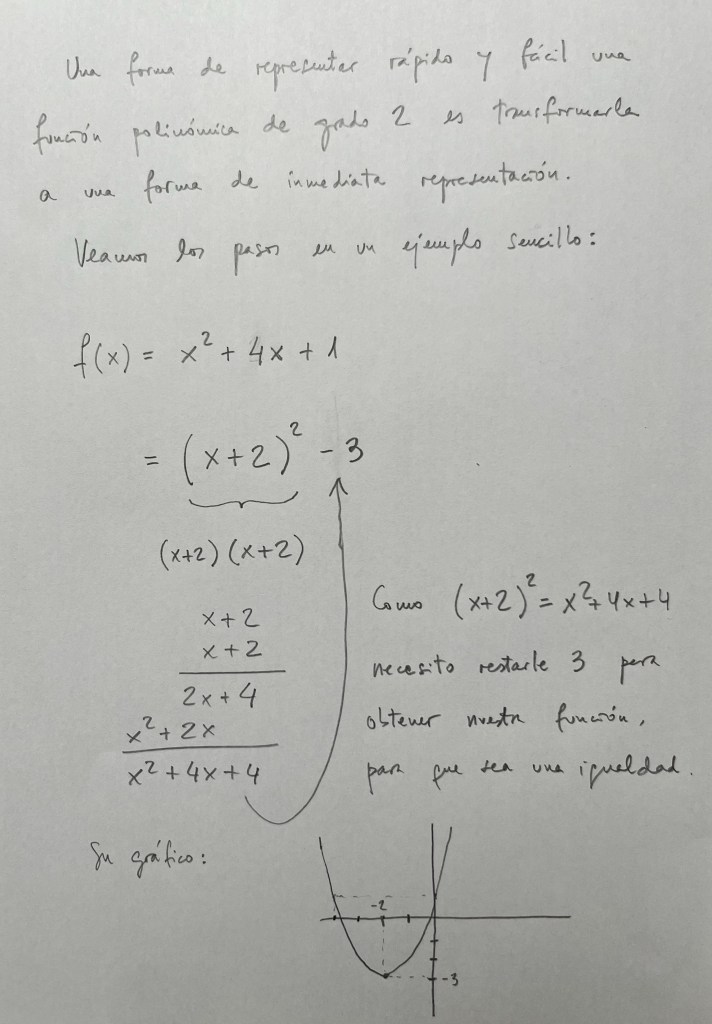 Una forma de representar rápido y fácil una
función polinómica de grado 2 es transformarla
a una forma de inmediata representación.
Veamos los pasos en un ejemplo sencillo:
f(x) = x² + 4x + 1
= (x+2)² - 3
(x+2) (x+2)
x+2
x+2
2x+4
x²+2x
x²+4x+4
Como (x+2)² = x²+4x+4
necesito restarle 3 para
obtener nuestra función,
para que sea una igualdad.
Su gráfico:
-2
-3